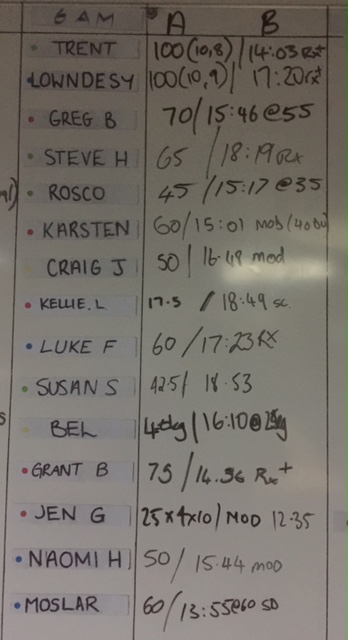 6 AM A B
TRENT 100(10,8) / 14:03 Rx
LOWNDESY 100(10,9) / 17:20 rx
GREG B 70/15:46@55
STEVE H 65 / 18:19 Rx
ROSCO 45 / 15:17 @35
KARSTEN 60/15:01 MOD (40
CRAIG J 50 / 16.48 mod
KELLIE.L 17.5 / 18:49 sc.
LUKE F 60 / 17:23 RX
SUSAN S 42.5/ 18.53
BEL / 16:10@
GRANT B 75 / 14.56 Rx+
JEN G 25x4x10 / MOD 12.35
NAOMI H 50 / 15.44 MOD
MOSLAR 60 / 13:55@60